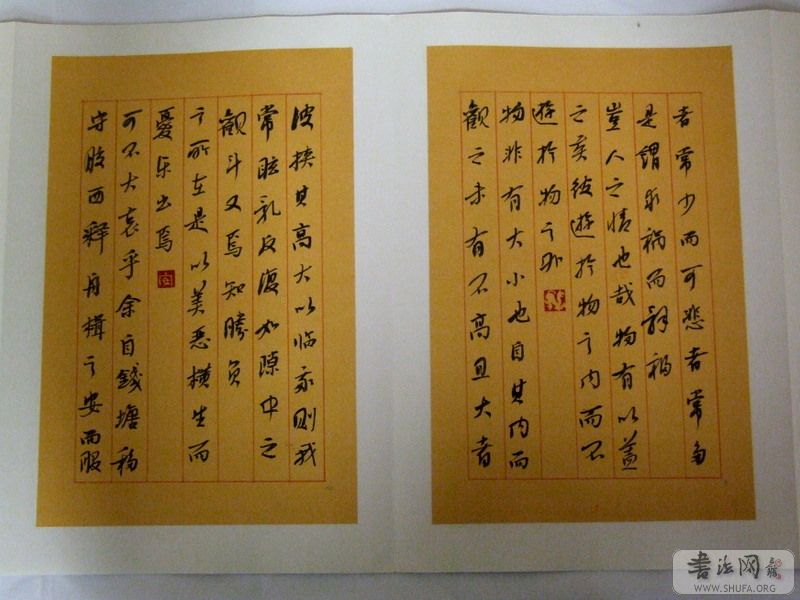 者常少而可悲者常多
是謂求禍而辭福
豈人之情也哉物有以蓋
之矣彼遊於物之内而不
遊於物之外
物非有大小也自其内而
觀之未有不高且大者
彼挟其高大以临我則我
常眩乱反復如隙中之
觀斗又焉知勝负
之所在是以美恶横生而
憂乐出焉
可不大哀乎余自錢塘移
守胶西釋舟楫之安而服
书法网
WWW.SHUFA.ORG